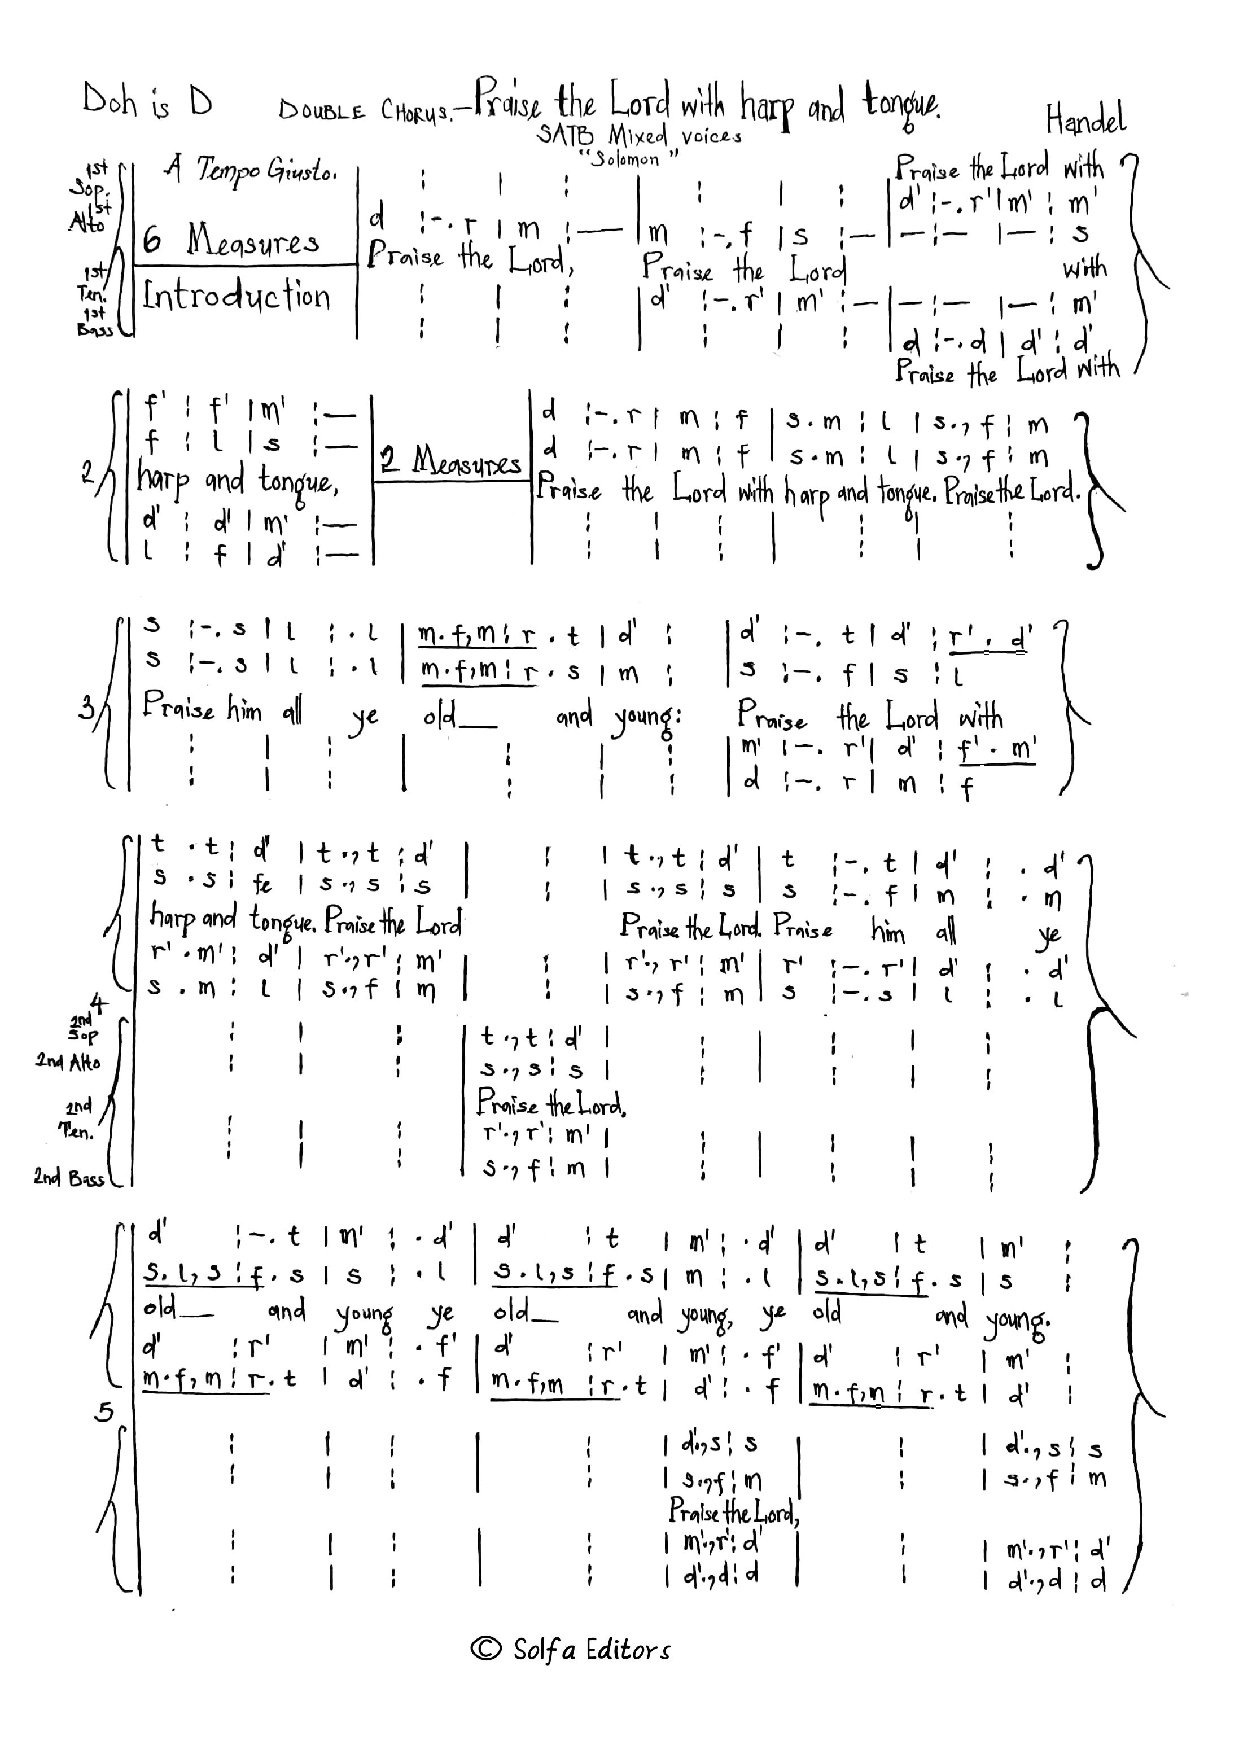 Doh is D DOUBLE CHORUS.— Praise the Lord with harp and tongue.
SATB Mixed voices
"Solomon"
Handel
1st Sop.
1st Alto
1st Ten.
1st Bass
A Tempo Giusto.
6 Measures
Introduction
Praise the Lord with
d' :-. r' | m' : m'
d :-. r | m :— | m :-. f | s :— | — : — | — : s
Praise the Lord, Praise the Lord with
d' :-. r' | m' : — | — : — | — : m'
d :-. d | d' : d'
Praise the Lord with
2
f' : f' | m' :— 
f : l | s :—
harp and tongue,
d' : d' | m' :—
l : f | d' :—
2 Measures
d :-. r | m : f | s . m : l | s ., f : m
d :-. r | m : f | s . m : l | s ., f : m
Praise the Lord with harp and tongue. Praise the Lord.
3
s :-. s | l : . l | m . f, m : r . t | d' : | d' :-. t | d' : r' . d'
s :-. s | l : . l | m . f, m : r . s | m : | s :-. f | s : l
Praise him all ye old__ and young: Praise the Lord with
m' :-. r' | d' : f' . m'
d :-. r | m : f
4
t . t : d' | t ., t : d' | : | t ., t : d' | t :-. t | d' : . d'
s . s : fe | s ., s : s | : | s ., s : s | s :-. f | m : . m
harp and tongue. Praise the Lord Praise the Lord. Praise him all ye
r' . m' : d' | r' ., r' : m' | : | r' ., r' : m' | r' :-. r' | d' : . d'
s . m : l | s ., f : m | : | s ., f : m | s :-. s | l : . l
2nd Sop
2nd Alto
2nd Ten.
2nd Bass
t ., t : d' |
s ., s : s |
Praise the Lord,
r' ., r' : m' |
s ., f : m |
5
d' :-. t | m' : . d' | d' : t | m' : . d' | d' : t | m' :
s . l, s : f . s | s : . l | s . l, s : f . s | m : . l | s . l, s : f . s | s :
old__ and young ye old__ and young, ye old and young.
d' : r' | m' : . f' | d' : r' | m' : . f' | d' : r' | m' :
m . f, m : r . t | d' : . f | m . f, m : r . t | d' : . f | m . f, m : r . t | d' :
| d' ., s : s | : | d' ., s : s
| s ., f : m | : | s ., f : m
Praise the Lord,
| m' ., r' : d' | : | m' ., r' : d'
| d' ., d : d | : | d' ., d : d
© Solfa Editors